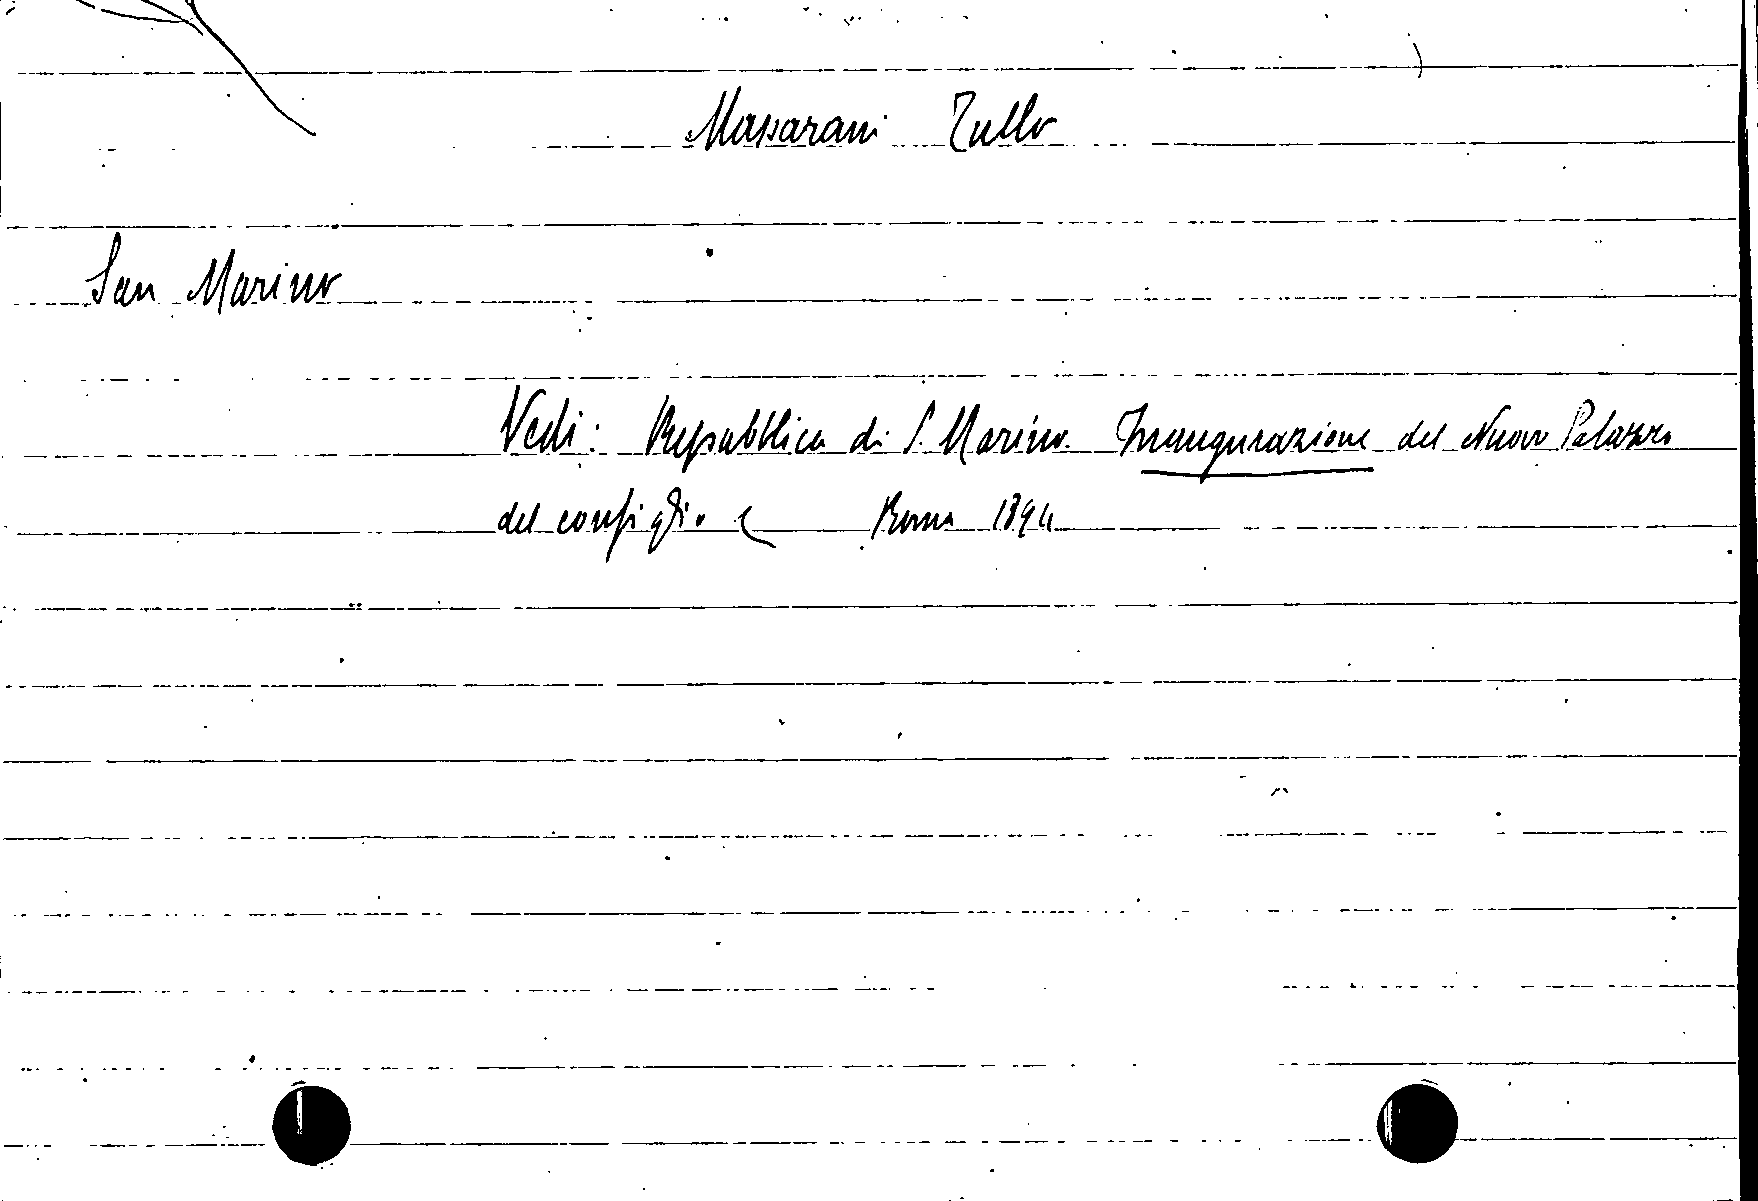 Massarani Tullo
San Marino
Vedi: Repubblica di S. Marino. Inaugurazione del Nuovo Palazzo
del consiglio Roma 1894